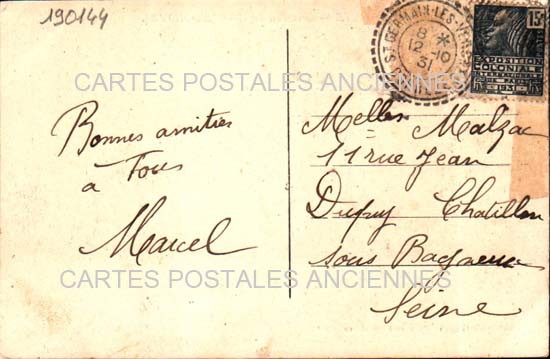 190144
ST GERMAIN-LES-V
8 *
12-10
31
15c
EXPOSITION
COLONIALE
CARTES POSTALES ANCIENNES
Bonnes amitiés
à Tous
Marcel
Melles Malzac
11 rue Jean
Dupuy Chatillon
sous Bagneux
Seine
CARTES POSTALES ANCIENNES